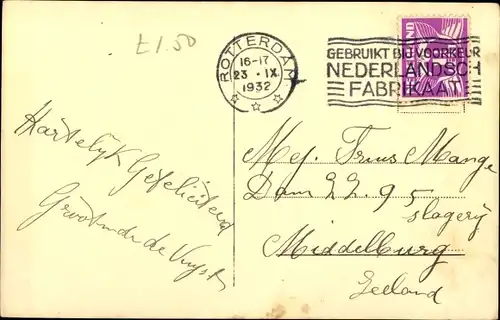 £1.50
ROTTERDAM
16-17
23 · IX
1932
GEBRUIKT BIJ VOORKEUR
NEDERLANDSCH
FABRIKAAT
Hartelijk Gefeliciteerd
de Kuyst
Mej. Truus Mange
Dam ZZ. 95
slagerij
Middelburg
Zeeland